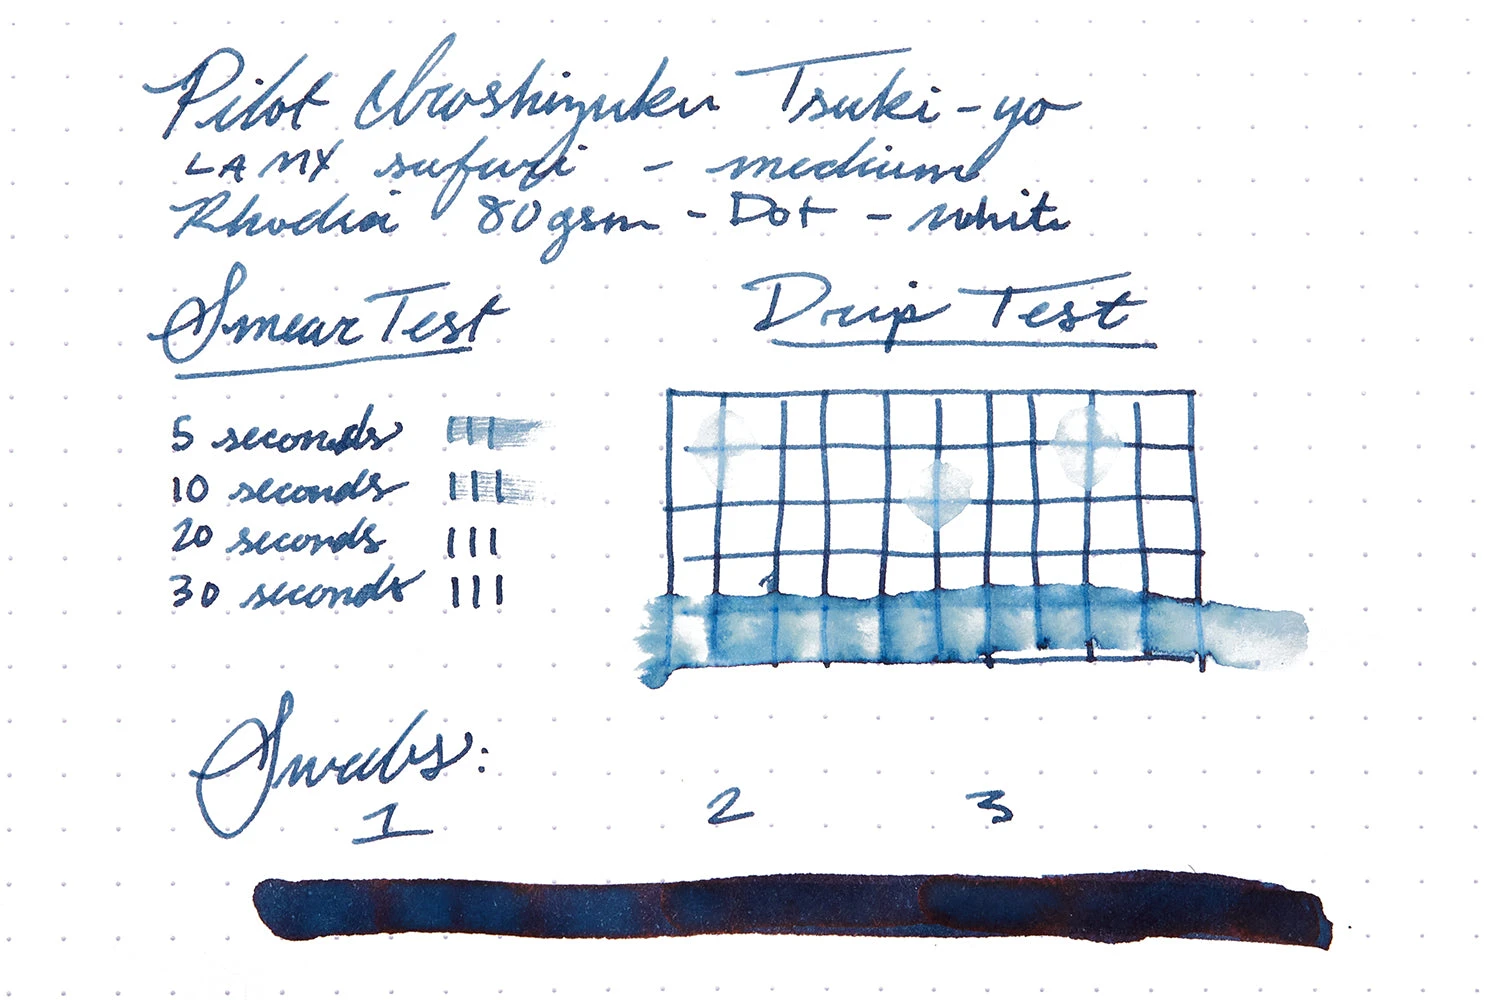 Pilot Iroshizuku Tsuki-yo
LAMY safari - medium
Rhodia 80gsm - Dot - white
Smear Test
5 seconds
10 seconds
20 seconds
30 seconds
Drip Test
Swabs:
1 2 3